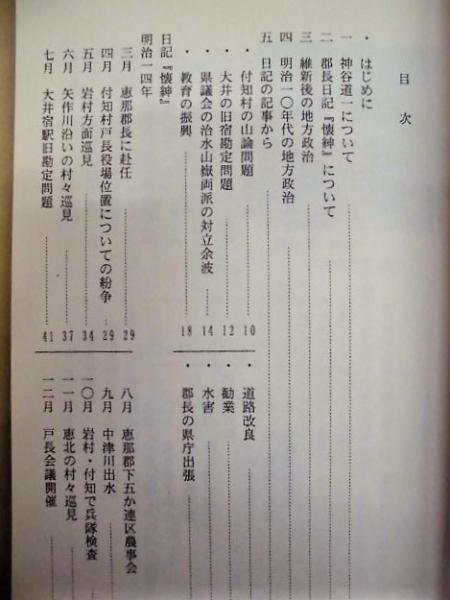 目次
・ はじめに
一 神谷道一について
二 郡長日記『懐紳』について
三 維新後の地方政治
四 明治一〇年代の地方政治
五 日記の記事から
・ 付知村の山論問題 10
・ 大井の旧宿勘定問題 12
・ 県議会の治水山嶽両派の対立余波 14
・ 教育の振興 18
・ 道路改良
・ 勧業
・ 水害
・ 郡長の県庁出張
日記『懐紳』
明治一四年
三月 恵那郡長に赴任 29
四月 付知村戸長役場位置についての紛争 29
五月 岩村方面巡見 34
六月 矢作川沿いの村々巡見 37
七月 大井宿駅旧勘定問題 41
八月 恵那郡下五か連区農事会
九月 中津川出水
一〇月 岩村・付知で兵隊検査
一一月 恵北の村々巡見
一二月 戸長会議開催